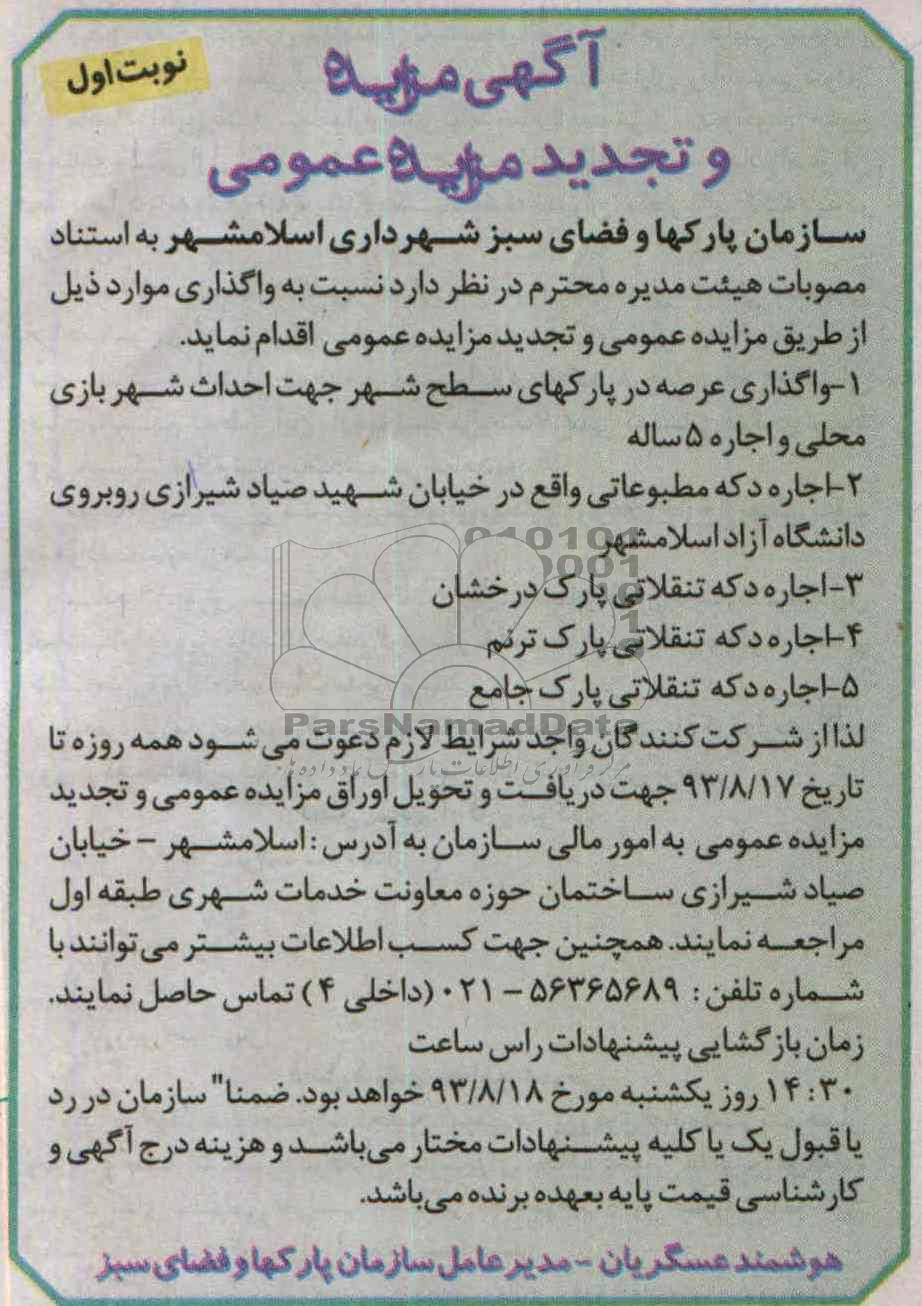 نوبت اول
آگهی مزایده
و تجدید مزایده عمومی
سازمان پارکها و فضای سبز شهرداری اسلامشهر به استناد
مصوبات هیئت مدیره محترم در نظر دارد نسبت به واگذاری موارد ذیل
از طریق مزایده عمومی و تجدید مزایده عمومی اقدام نماید.
۱-واگذاری عرصه در پارکهای سطح شهر جهت احداث شهر بازی
محلی و اجاره ۵ ساله
۲-اجاره دکه مطبوعاتی واقع در خیابان شهید صیاد شیرازی روبروی
دانشگاه آزاد اسلامشهر
۳-اجاره دکه تنقلاتی پارک درخشان
۴-اجاره دکه تنقلاتی پارک ترنم
۵-اجاره دکه تنقلاتی پارک جامع
ParsNamadData
لذا از شرکت کنندگان واجد شرایط لازم دعوت می شود همه روزه تا
تاریخ ۹۳/۸/۱۷ جهت دریافت و تحویل اوراق مزایده عمومی و تجدید
مزایده عمومی به امور مالی سازمان به آدرس : اسلامشهر – خیابان
صیاد شیرازی ساختمان حوزه معاونت خدمات شهری طبقه اول
مراجعه نمایند. همچنین جهت کسب اطلاعات بیشتر می توانند با
شماره تلفن : ۵۶۳۶۵۶۸۹ – ۰۲۱ (داخلی ۴ ) تماس حاصل نمایند.
زمان بازگشایی پیشنهادات راس ساعت
۱۴:۳۰ روز یکشنبه مورخ ۹۳/۸/۱۸ خواهد بود. ضمنا" سازمان در رد
یا قبول یک یا کلیه پیشنهادات مختار می باشد و هزینه درج آگهی و
کارشناسی قیمت پایه بعهده برنده می باشد.
هوشمند عسگریان - مدیر عامل سازمان پارکها و فضای سبز